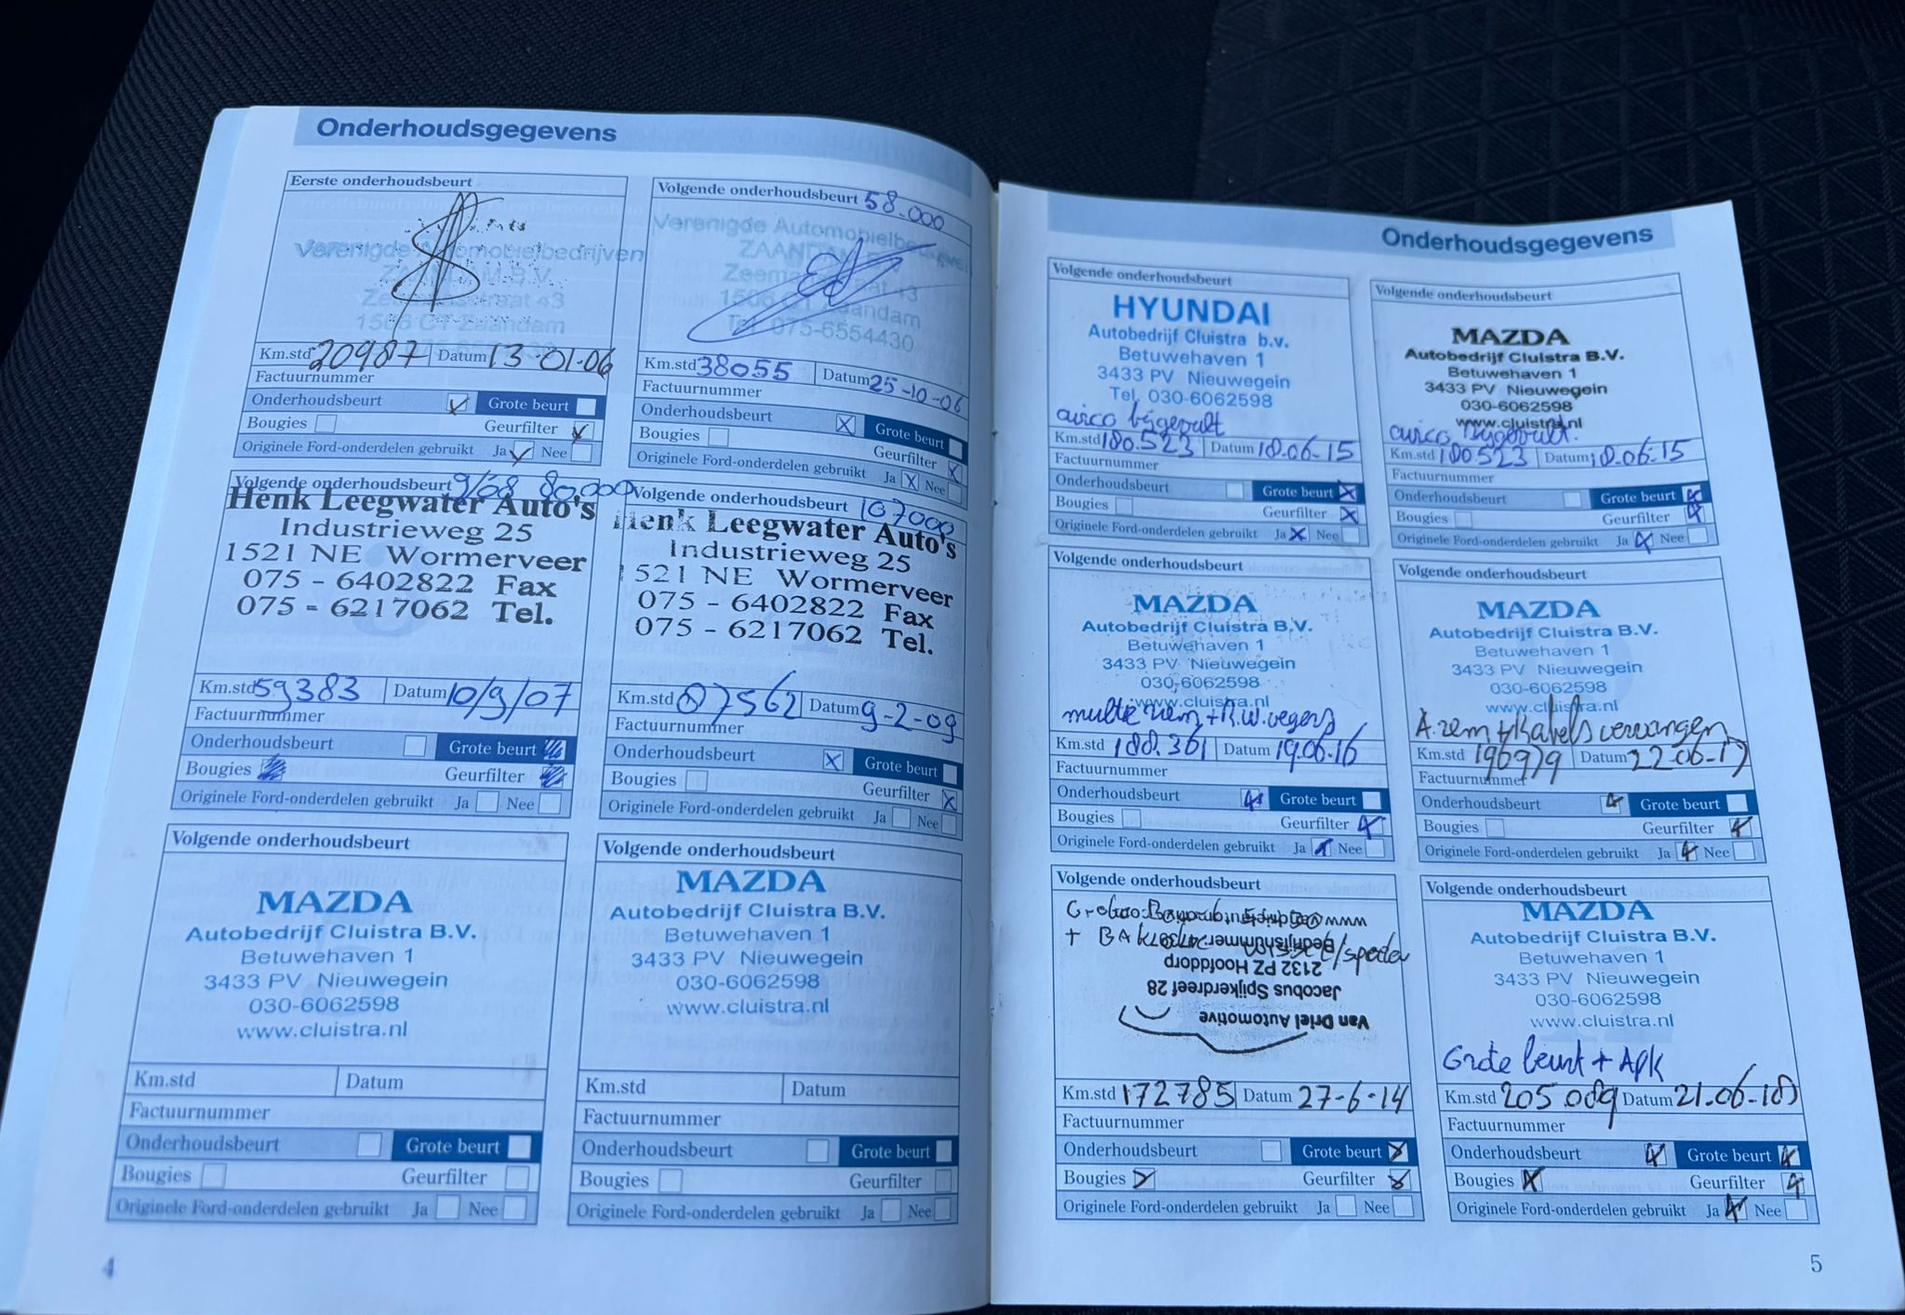 Onderhoudsgegevens
Eerste onderhoudsbeurt
Verenigde Automobielbedrijven
ZAANDAM B.V.
Zeemanstraat 43
1506 CT Zaandam
Km.std 20987 Datum 13-01-06
Factuurnummer
Onderhoudsbeurt Grote beurt
Bougies Geurfilter
Originele Ford-onderdelen gebruikt Ja Nee
Volgende onderhoudsbeurt 58.000
Verenigde Automobielbedrijven
ZAANDAM B.V.
Zeemanstraat 43
1506 CT Zaandam
Tel. 075-6554430
Km.std 38055 Datum 25-10-06
Factuurnummer
Onderhoudsbeurt Grote beurt
Bougies Geurfilter
Originele Ford-onderdelen gebruikt Ja Nee
Volgende onderhoudsbeurt 9/08 80.000
Henk Leegwater Auto's
Industrieweg 25
1521 NE Wormerveer
075 - 6402822 Fax
075 - 6217062 Tel.
Km.std 59383 Datum 10/9/07
Factuurnummer
Onderhoudsbeurt Grote beurt
Bougies Geurfilter
Originele Ford-onderdelen gebruikt Ja Nee
Volgende onderhoudsbeurt 107000
Henk Leegwater Auto's
Industrieweg 25
1521 NE Wormerveer
075 - 6402822 Fax
075 - 6217062 Tel.
Km.std 87562 Datum 9-2-09
Factuurnummer
Onderhoudsbeurt Grote beurt
Bougies Geurfilter
Originele Ford-onderdelen gebruikt Ja Nee
Volgende onderhoudsbeurt
MAZDA
Autobedrijf Cluistra B.V.
Betuwehaven 1
3433 PV Nieuwegein
030-6062598
www.cluistra.nl
Km.std Datum
Factuurnummer
Onderhoudsbeurt Grote beurt
Bougies Geurfilter
Originele Ford-onderdelen gebruikt Ja Nee
Volgende onderhoudsbeurt
MAZDA
Autobedrijf Cluistra B.V.
Betuwehaven 1
3433 PV Nieuwegein
030-6062598
www.cluistra.nl
Km.std Datum
Factuurnummer
Onderhoudsbeurt Grote beurt
Bougies Geurfilter
Originele Ford-onderdelen gebruikt Ja Nee
4
Onderhoudsgegevens
Volgende onderhoudsbeurt
HYUNDAI
Autobedrijf Cluistra b.v.
Betuwehaven 1
3433 PV Nieuwegein
Tel. 030-6062598
airco bijgevult
Km.std 180.523 Datum 18-06-15
Factuurnummer
Onderhoudsbeurt Grote beurt
Bougies Geurfilter
Originele Ford-onderdelen gebruikt Ja Nee
Volgende onderhoudsbeurt
MAZDA
Autobedrijf Cluistra B.V.
Betuwehaven 1
3433 PV Nieuwegein
030-6062598
www.cluistra.nl
airco bijgevult.
Km.std 180523 Datum 18-06-15
Factuurnummer
Onderhoudsbeurt Grote beurt
Bougies Geurfilter
Originele Ford-onderdelen gebruikt Ja Nee
Volgende onderhoudsbeurt
MAZDA
Autobedrijf Cluistra B.V.
Betuwehaven 1
3433 PV Nieuwegein
030-6062598
www.cluistra.nl
multi riem + R.W. vegers
Km.std 188.361 Datum 19-06-16
Factuurnummer
Onderhoudsbeurt Grote beurt
Bougies Geurfilter
Originele Ford-onderdelen gebruikt Ja Nee
Volgende onderhoudsbeurt
MAZDA
Autobedrijf Cluistra B.V.
Betuwehaven 1
3433 PV Nieuwegein
030-6062598
www.cluistra.nl
A. rem + Kabels vervangen
Km.std 196979 Datum 22-06-17
Factuurnummer
Onderhoudsbeurt Grote beurt
Bougies Geurfilter
Originele Ford-onderdelen gebruikt Ja Nee
Volgende onderhoudsbeurt
Bedrijfsnummer
2132 PZ Hoofddorp
Jacobus Spijkerdreef 28
Van Driel Automotive
Km.std 172785 Datum 27-6-14
Factuurnummer
Onderhoudsbeurt Grote beurt
Bougies Geurfilter
Originele Ford-onderdelen gebruikt Ja Nee
Volgende onderhoudsbeurt
MAZDA
Autobedrijf Cluistra B.V.
Betuwehaven 1
3433 PV Nieuwegein
030-6062598
www.cluistra.nl
Grote beurt + Apk
Km.std 205089 Datum 21-06-18
Factuurnummer
Onderhoudsbeurt Grote beurt
Bougies Geurfilter
Originele Ford-onderdelen gebruikt Ja Nee
5